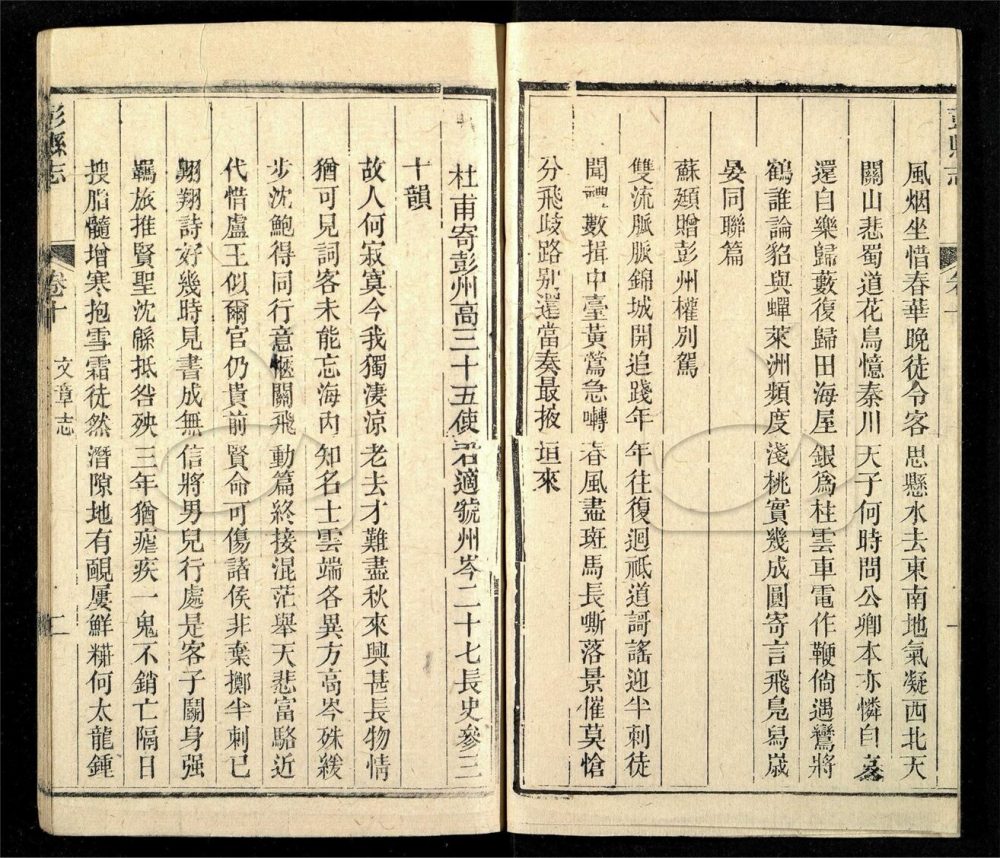 風烟坐惜春華晚徒令客思懸水去東南地氣凝西北天
關山悲蜀道花鳥憶秦川天子何時問公卿本亦憐自哀
還自樂歸藪復歸田海屋銀為柱雲車電作鞭倘遇鸞將
鶴誰論貂與蟬萊洲頻度淺桃實幾成圓寄言飛鳧舄歲
晏同聯篇
蘇頲贈彭州權別駕
雙流脈脈錦城開追踐年年往復迴祗道謌謠迎半刺徒
聞禮數揖中臺黃鶯急囀春風盡斑馬長嘶落景催莫愴
分飛歧路別還當奏最掖垣來
杜甫寄彭州高三十五使君適虢州岑二十七長史參三
十韻
故人何寂寞今我獨淒涼老去才難盡秋來興甚長物情
猶可見詞客未能忘海內知名士雲端各異方高岑殊緩
步沈鮑得同行意愜關飛動篇終接混茫舉天悲富駱近
代惜盧王似爾官仍貴前賢命可傷諸侯非棄擲半刺已
翱翔詩好幾時見書成無信將男兒行處是客子鬭身强
羈旅推賢聖沈緜抵咎殃三年猶瘧疾一鬼不銷亡隔日
搜脂髓增寒抱雪霜徒然潛隙地有靦屢鮮糚何太龍鍾
彭縣志
卷十
文章志
二